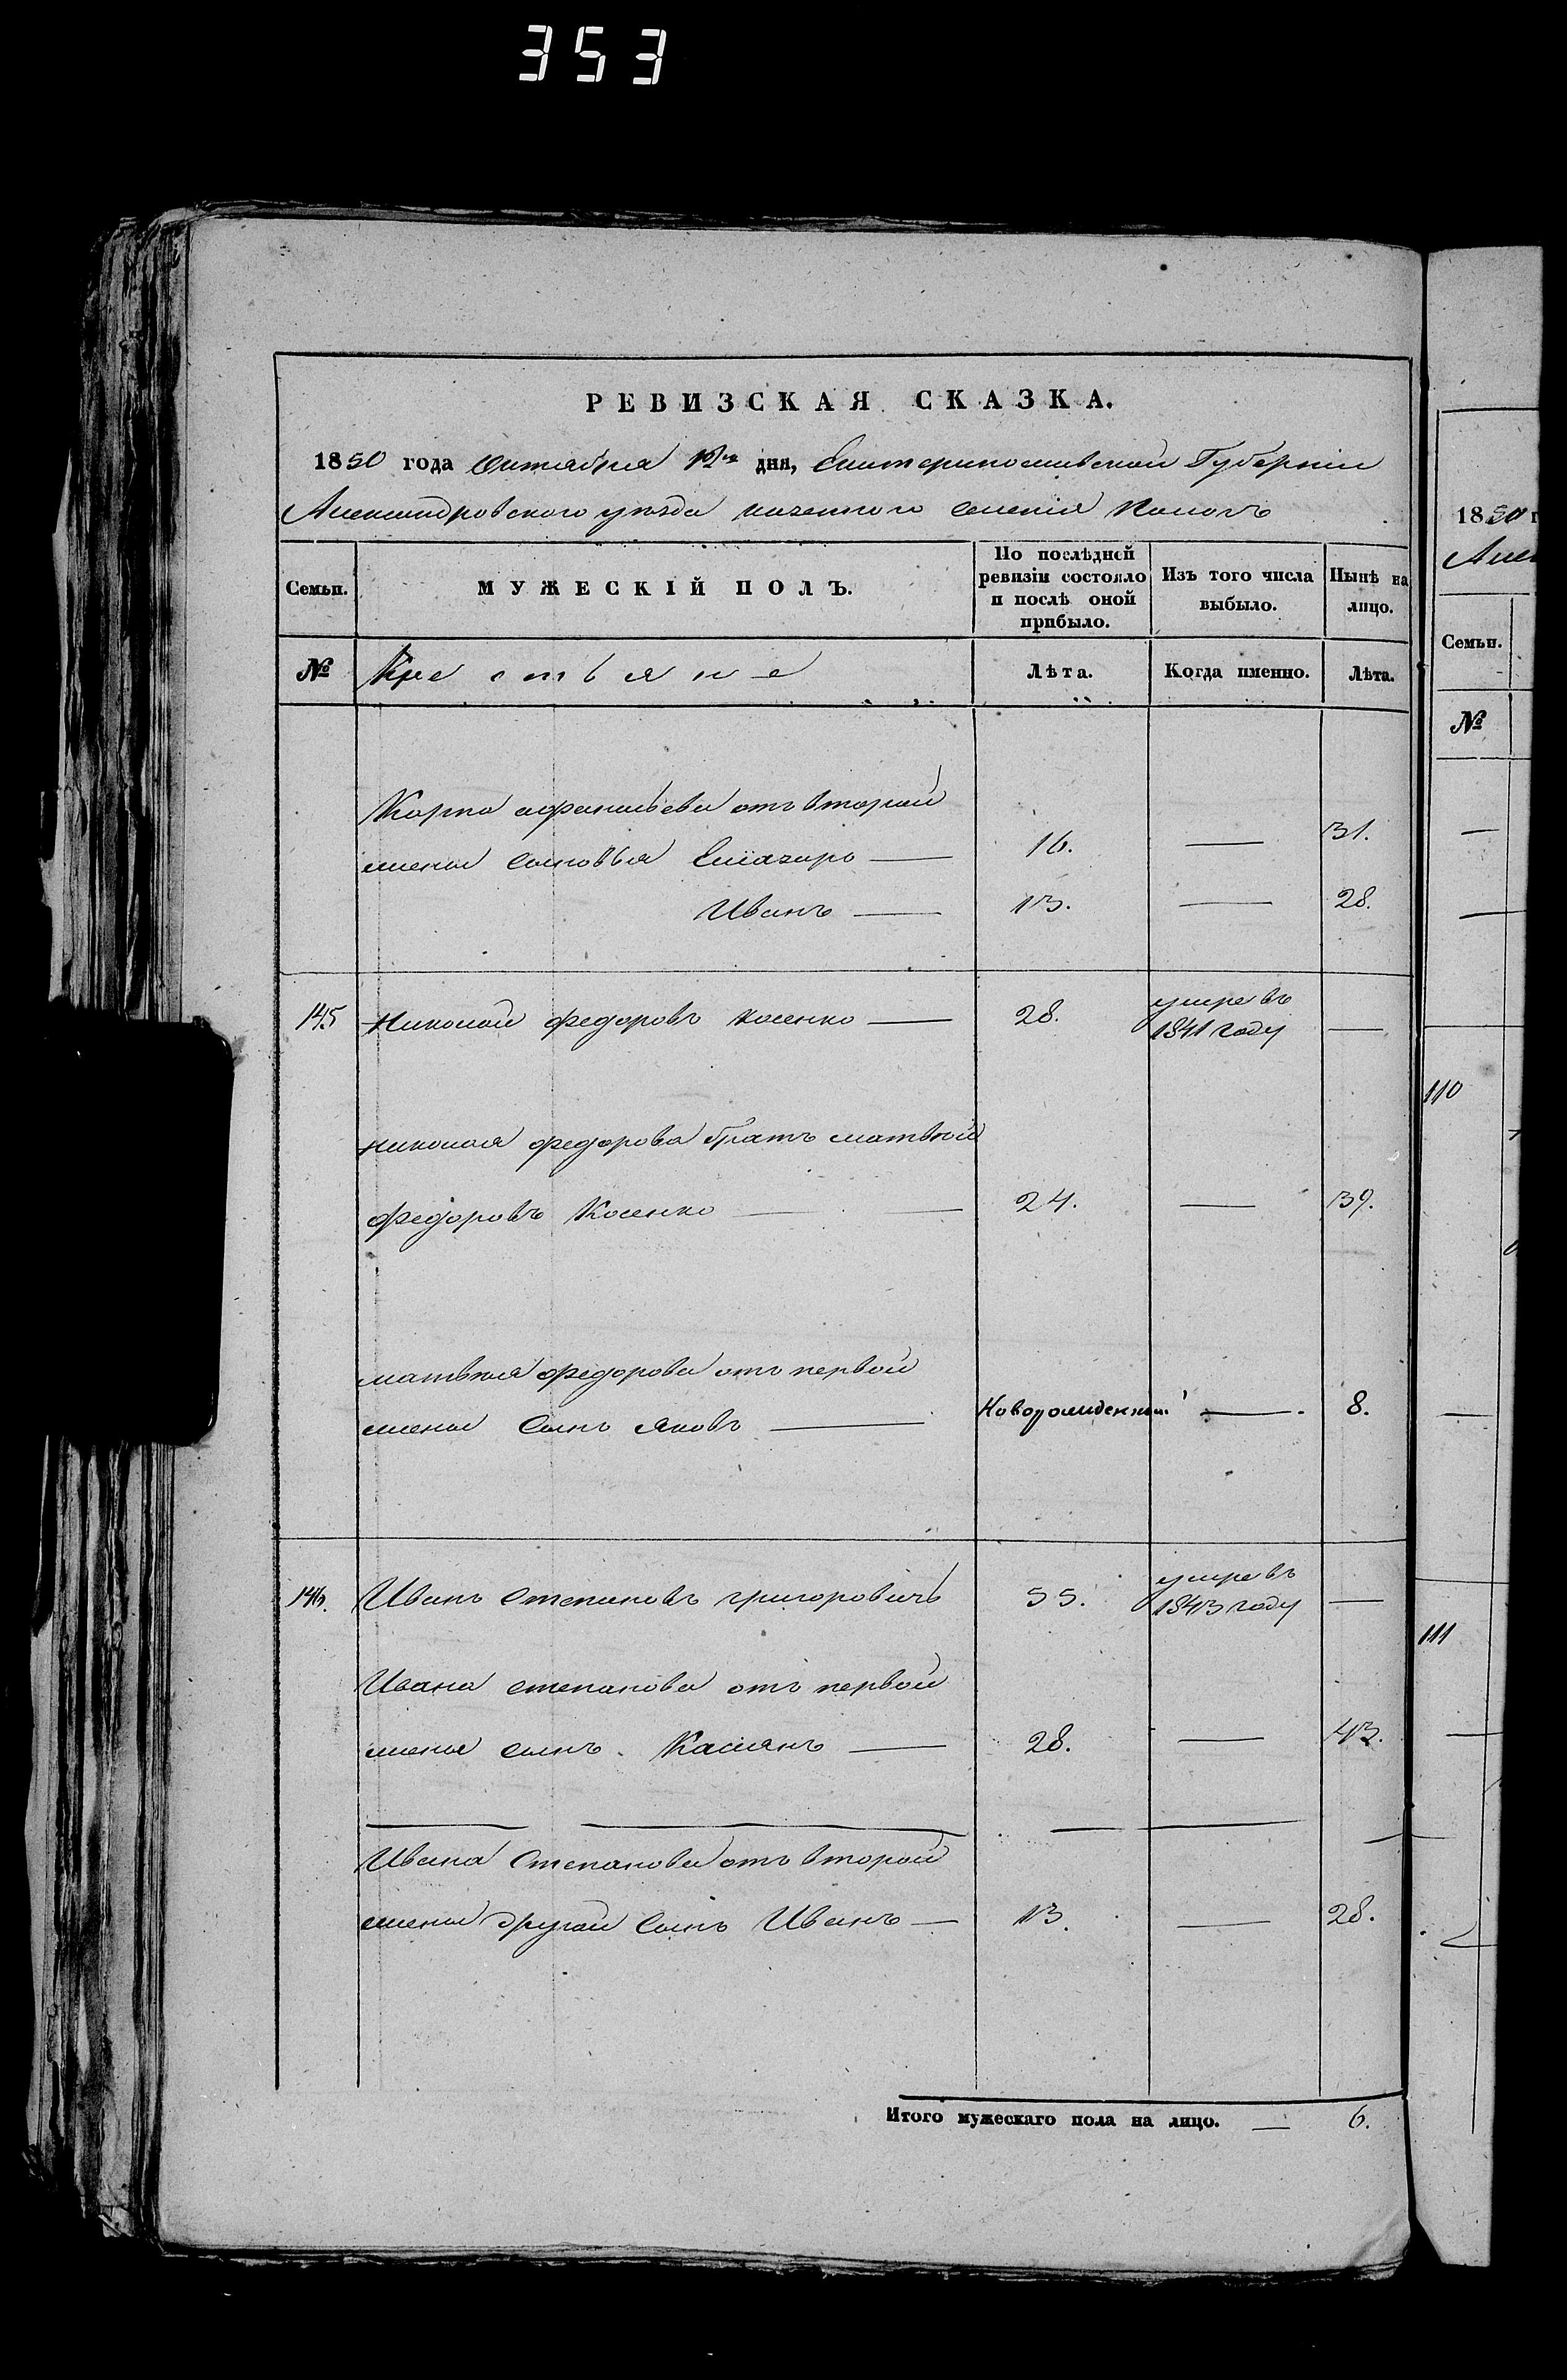 353
РЕВИЗСКАЯ СКАЗКА.
1850 года Октября 12го дня, Екатеринославской Губерніи
Александровского уезда казенного селенія Коного
Семьи. МУЖЕСКІЙ ПОЛЪ. По послѣдней ревизіи состояло и послѣ оной прибыло. Изъ того числа выбыло. Нынѣ на лицо.
№ Крестьяне Лѣта. Когда именно. Лѣта.
Карпа афанасьева отъ второй
жены сыновья Елиазаръ — 16. — 31.
Иванъ — 13. — 28.
145 Николай федоровъ косенко — 28. умре въ 1841 году —
николая федорова братъ матвѣй
федоровъ Косенко — 24. — 39.
матвѣя федорова отъ первой
жены сынъ яковъ — Новорожденный — 8.
146. Иванъ Степановъ григоровичъ 55. умре въ 1843 году —
Ивана степанова отъ первой
жены сынъ Касиянъ — 28. — 43.
Ивана Степанова отъ второй
жены другой сынъ Иванъ — 13. — 28.
Итого мужескаго пола на лицо. — 6.
1850 г
Алек
Семьи.
№
110
111